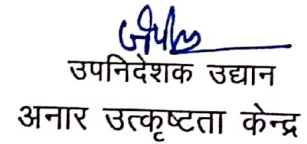 उपनिदेशक उद्यान
अनार उत्कृष्टता केन्द्र